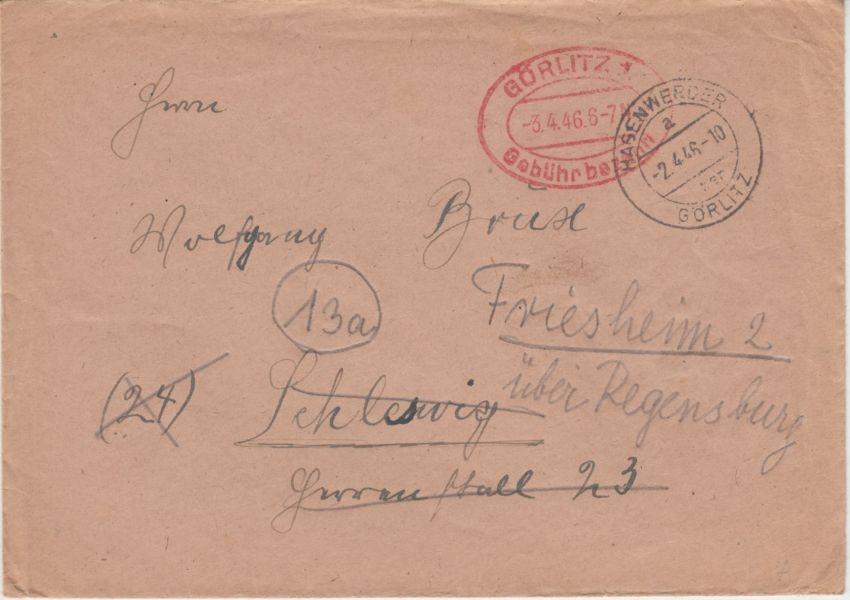 GÖRLITZ 1
-3.4.46.6-7
Gebühr bezahlt
HAGENWERDER
a
-2.4.46.-10
über
GÖRLITZ
Herrn
Wolfgang
13a
Friesheim 2
über Regensburg
(24)
Schleswig
Herrenstall 23